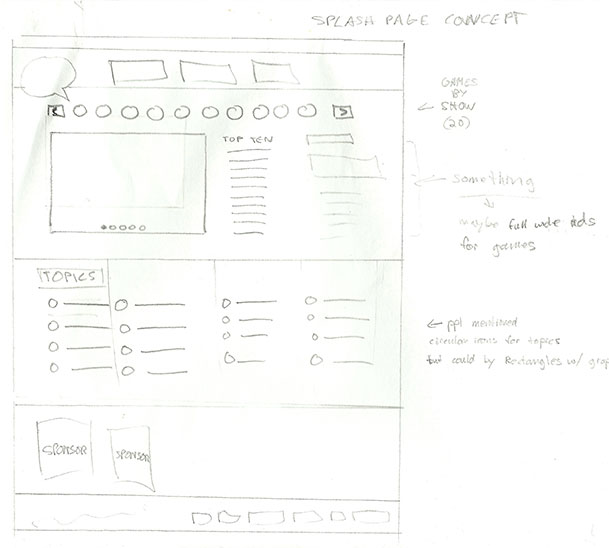 SPLASH PAGE CONCEPT
GAMES
BY
SHOW
(20)
TOP TEN
something
maybe full wide ads
for games
TOPICS
ppl mentioned
circular icons for topics
but could by Rectangles w/ grap
SPONSOR
SPONSOR